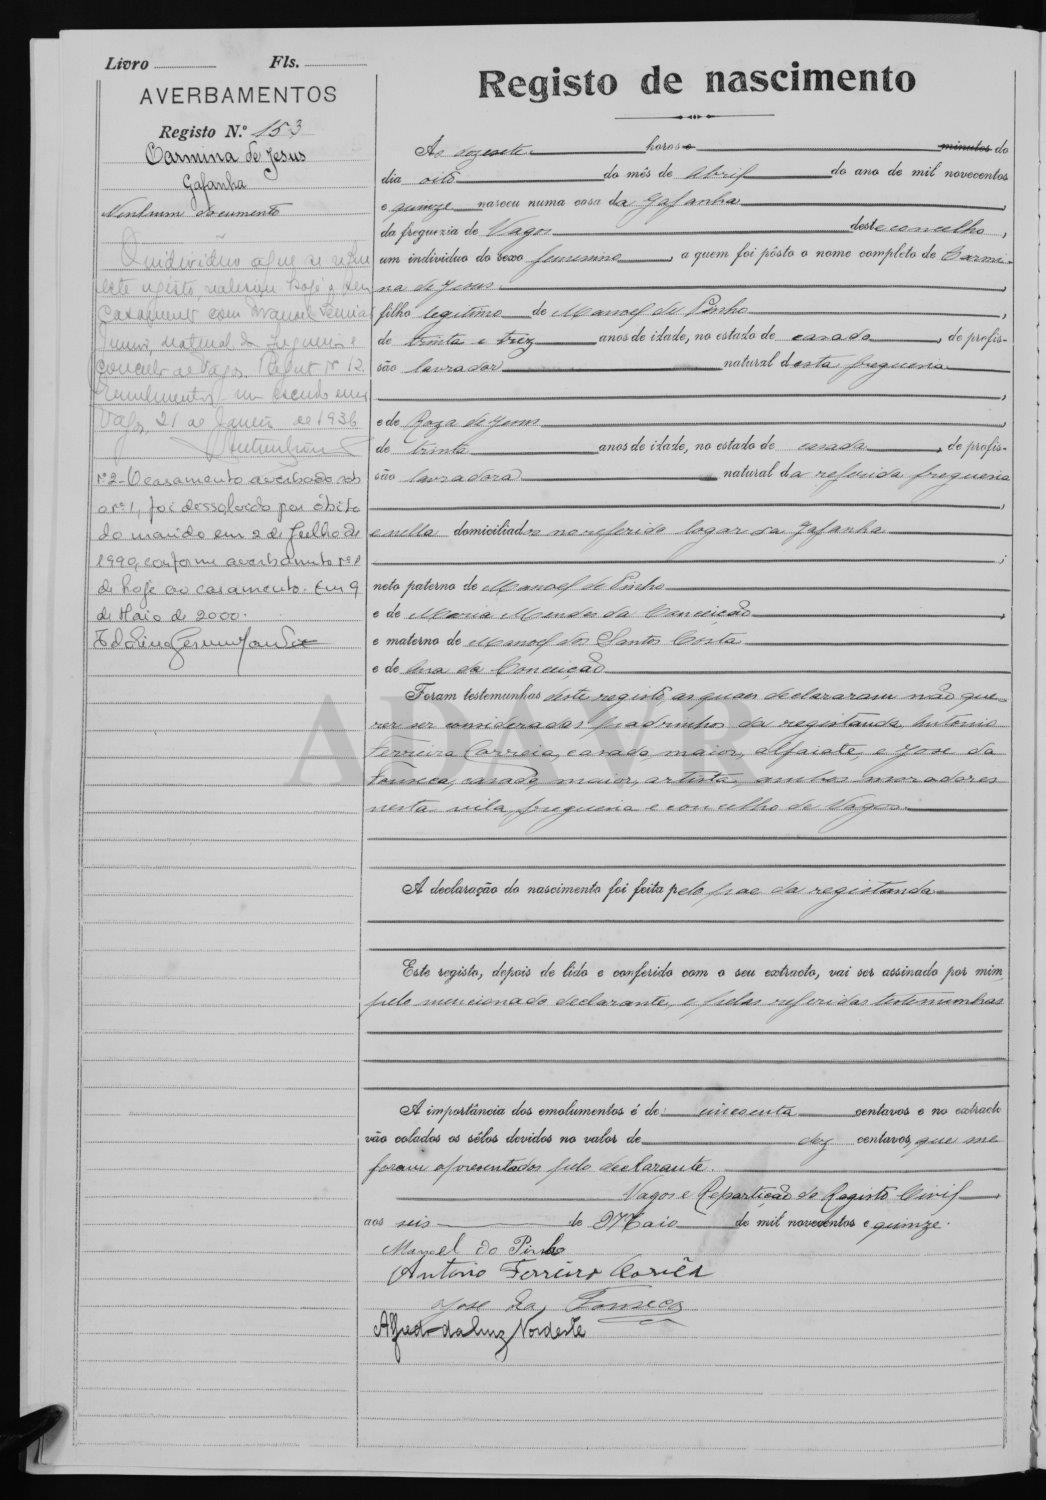 Livro Fls.
AVERBAMENTOS
Registo N.º 153
Carmina de Jesus
Gafanha
Nenhum documento
O individuo a que se refere
este registo, realisou hoje o seu
casamento com Manuel
natural da freguesia e
concelho de Vagos. N.º 12.
Emolumentos um escudo
Vagos, 21 de Janeiro de 1936
Nº 2 - O casamento averbado sob
o nº 1, foi dissolvido por óbito
do marido em 2 de Julho de
1990, conforme averbamento nº 1
de hoje ao casamento. Em 9
de Maio de 2000.
Registo de nascimento
Ás dezesete horas minutos do
dia oito do mês de Abril do ano de mil novecentos
e quinze nasceu numa casa da Gafanha,
da freguezia de Vagos deste concelho,
um individuo do sexo femenino, a quem foi pôsto o nome completo de Carmi-
na de Jesus,
filho legitimo de Manoel de Pinho,
de trinta e trez anos de idade, no estado de casado, de profis-
são lavrador natural desta freguesia
,
e de Roza de Jesus,
de trinta anos de idade, no estado de casada, de profis-
são lavradora natural da referida freguesia
,
e nella domiciliados no referido logar da Gafanha
;
neto paterno de Manoel de Pinho
e de Maria Mendes da Conceição,
e materno de Manoel dos Santos Costa
e de Ana da Conceição
Foram testemunhas deste registo, as quaes declararam não que-
rer ser consideradas padrinhos da registanda, Antonio
Ferreira Correia, casado, maior, alfaiate, e Jose da
Fonseca, casado, maior, artista, ambos moradores
nesta vila, freguesia e concelho de Vagos
A declaração do nascimento foi feita pelo pae da registanda
Este registo, depois de lido e conferido com o seu extracto, vai ser assinado por mim,
pelo mencionado declarante, e pelas referidas testemunhas
A importância dos emolumentos é de cincoenta centavos e no extracto
vão colados os sêlos devidos no valor de dez centavos, que me
foram apresentados pelo declarante.
Vagos e Repartição do Registo Civil,
aos seis de Maio de mil novecentos e quinze.
Manoel do Pinho
Antonio Ferreira Corrêa
Jose da Fonseca
Alfredo da Luz Nordeste
ADAVR